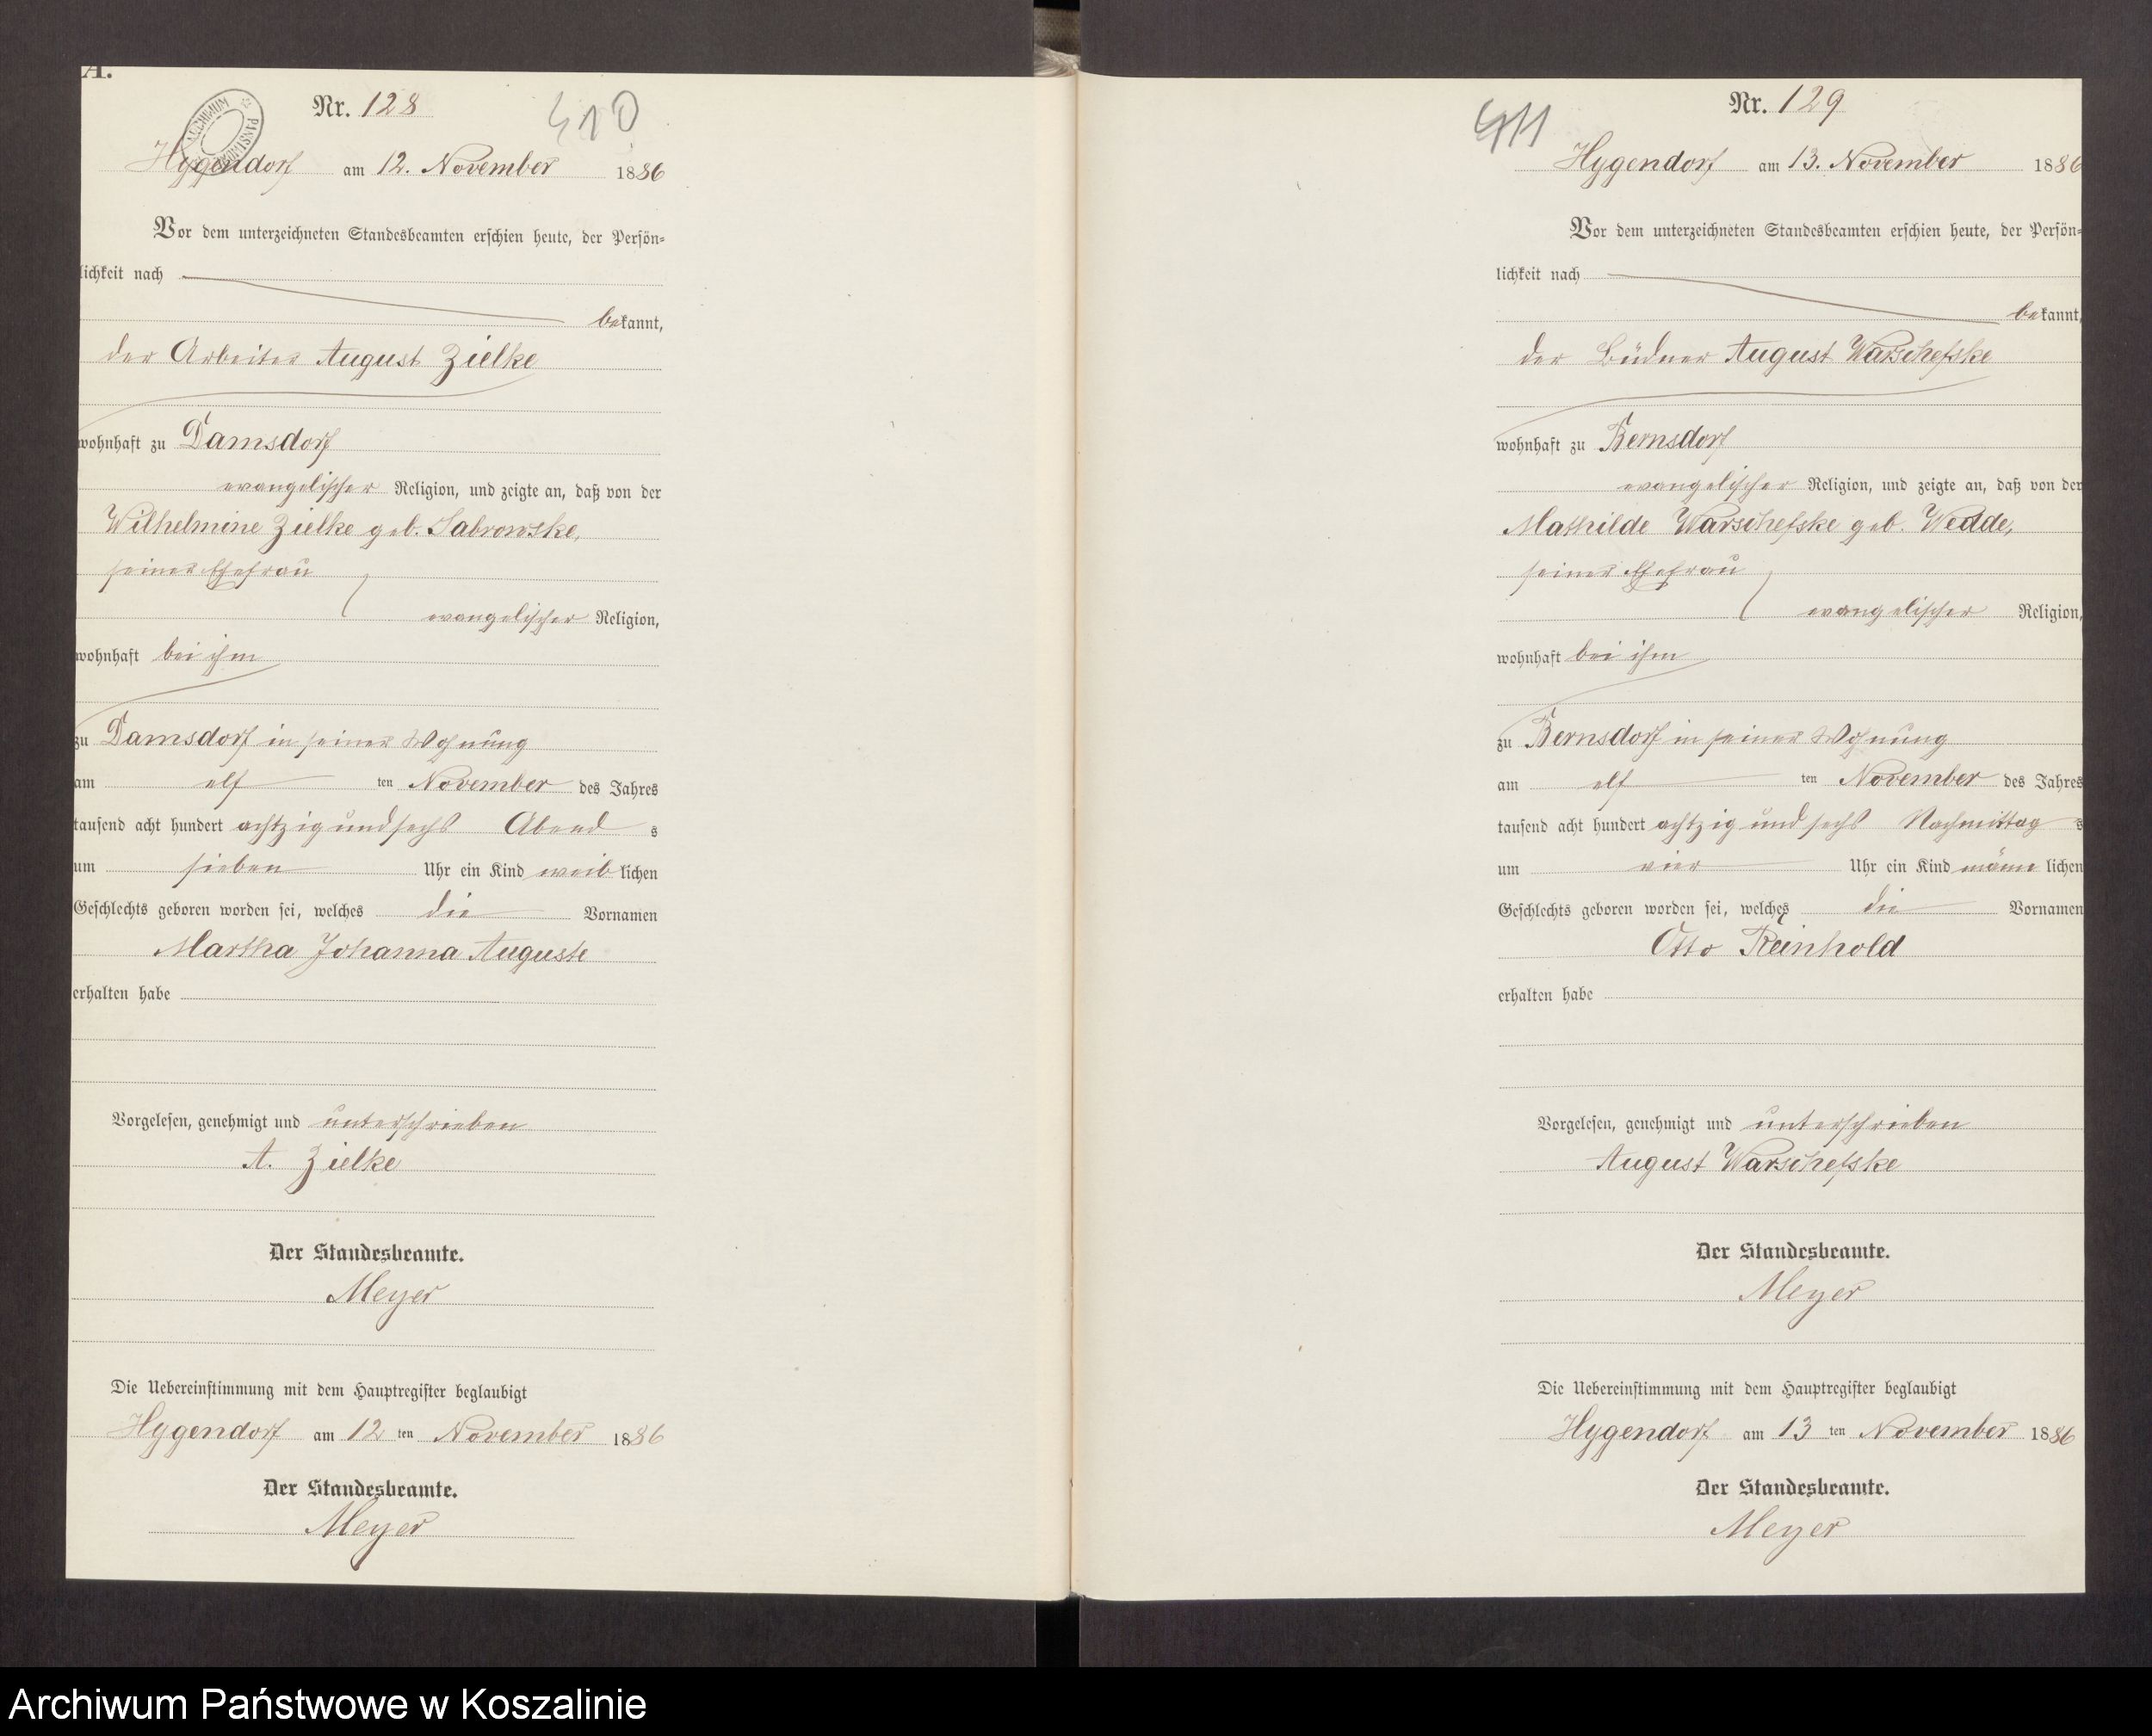 A.
Nr. 128
410
Hygendorf am 12. November 1886
Vor dem unterzeichneten Standesbeamten erschien heute, der Persön-
lichkeit nach
bekannt,
der Arbeiter August Zielke
wohnhaft zu Damsdorf
evangelischer Religion, und zeigte an, daß von der
Wilhelmine Zielke geb. Sabrowske,
seiner Ehefrau
evangelischer Religion,
wohnhaft bei ihm
zu Damsdorf in seiner Wohnung
am elf ten November des Jahres
tausend acht hundert achtzig und sechs Abends
um sieben Uhr ein Kind weiblichen
Geschlechts geboren worden sei, welches die Vornamen
Martha Johanna Auguste
erhalten habe
Vorgelesen, genehmigt und unterschrieben
A. Zielke
Der Standesbeamte.
Meyer
Die Uebereinstimmung mit dem Hauptregister beglaubigt
Hygendorf am 12 ten November 1886
Der Standesbeamte.
Meyer
Nr. 129
411
Hygendorf am 13. November 1886
Vor dem unterzeichneten Standesbeamten erschien heute, der Persön-
lichkeit nach
bekannt,
der Büdner August Warschefske
wohnhaft zu Bernsdorf
evangelischer Religion, und zeigte an, daß von der
Mathilde Warschefske geb. Wedde,
seiner Ehefrau
evangelischer Religion,
wohnhaft bei ihm
zu Bernsdorf in seiner Wohnung
am elf ten November des Jahres
tausend acht hundert achtzig und sechs Nachmittags
um vier Uhr ein Kind männlichen
Geschlechts geboren worden sei, welches die Vornamen
Otto Reinhold
erhalten habe
Vorgelesen, genehmigt und unterschrieben
August Warschefske
Der Standesbeamte.
Meyer
Die Uebereinstimmung mit dem Hauptregister beglaubigt
Hygendorf am 13 ten November 1886
Der Standesbeamte.
Meyer
Archiwum Państwowe w Koszalinie